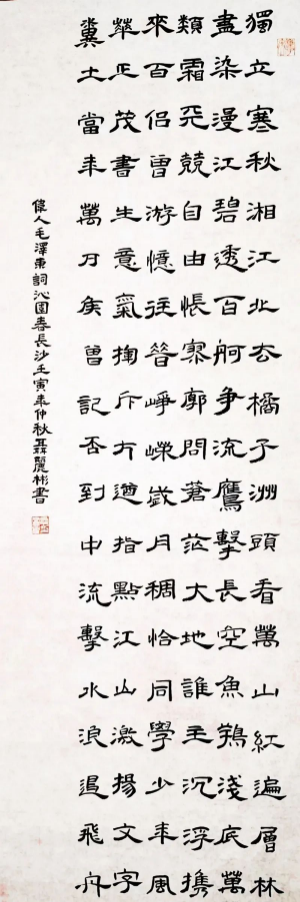 獨立寒秋湘江北去橘子洲頭看萬山紅遍層林
盡染漫江碧透百舸争流鷹擊長空魚翔淺底萬
類霜天競自由悵寥廓問蒼茫大地誰主沉浮携
來百侣曾游憶往昔崢嶸歲月稠恰同學少年風
華正茂書生意氣揮斥方遒指點江山激揚文字
糞土當年萬户侯曾記否到中流擊水浪遏飛舟
偉人毛澤東詞沁園春長沙壬寅年仲秋聶麗彬書